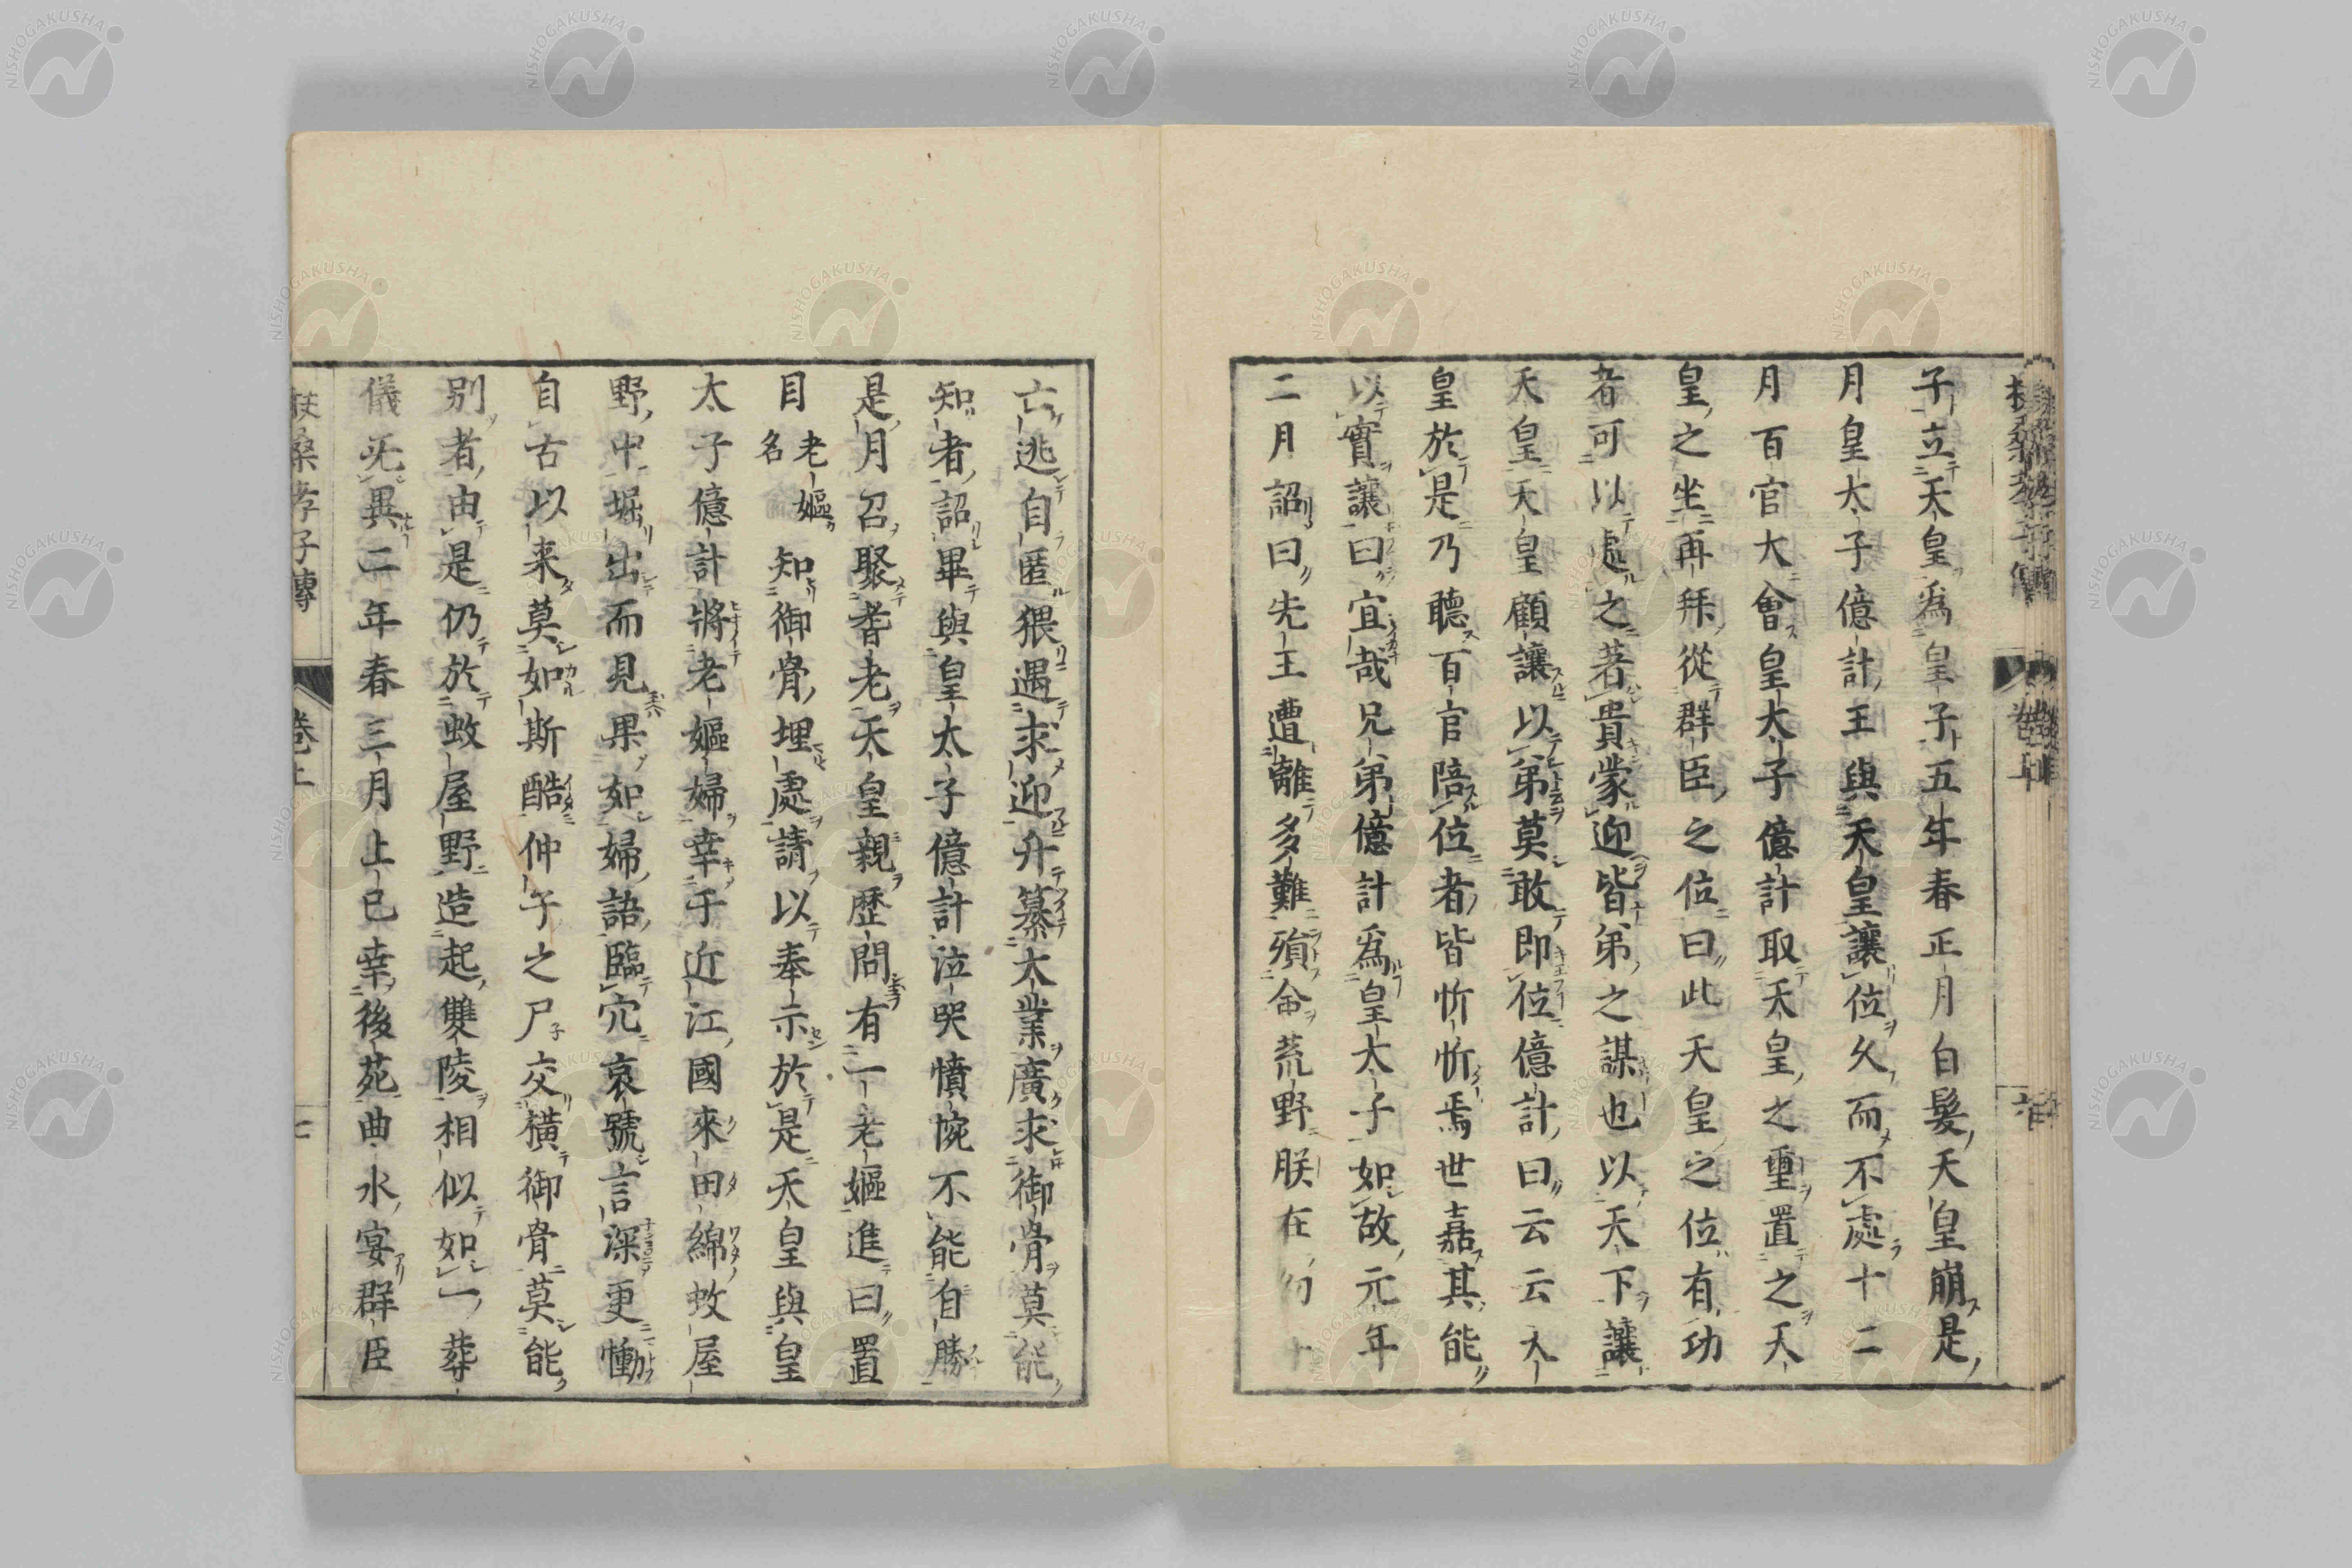 子立天皇為皇子五年春正月白髮天皇崩是
月皇太子億計王與天皇讓位久而不處十二
月百官大會皇太子億計取天皇之璽置之天
皇之坐再拜從群臣之位曰此天皇之位有功
者可以處之著貴蒙迎皆弟之謀也以天下讓
天皇天皇顧讓以弟莫敢即位億計曰云云天
皇於是乃聽百官陪位者皆忻忻焉世嘉其能
以實讓曰宜哉兄弟億計為皇太子如故元年
二月詔曰先王遭離多難殞命荒野朕在幼
亡逃自匿猥遇求迎升纂大業廣求御骨莫能
知者詔畢與皇太子億計泣哭憤惋不能自勝
是月召聚耆老天皇親歷問有一老嫗進曰置
目老嫗名知御骨埋處請以奉示於是天皇與皇
太子億計將老嫗婦幸于近江國來田綿蚊屋
野中堀出而見果如婦語臨穴哀號言深更慟
自古以来莫如斯酷仲子之尸交横御骨莫能
別者由是仍於蚊屋野造起雙陵相似如一葬
儀无異二年春三月上巳幸後苑曲水宴群臣
扶桑孝子傳 卷上